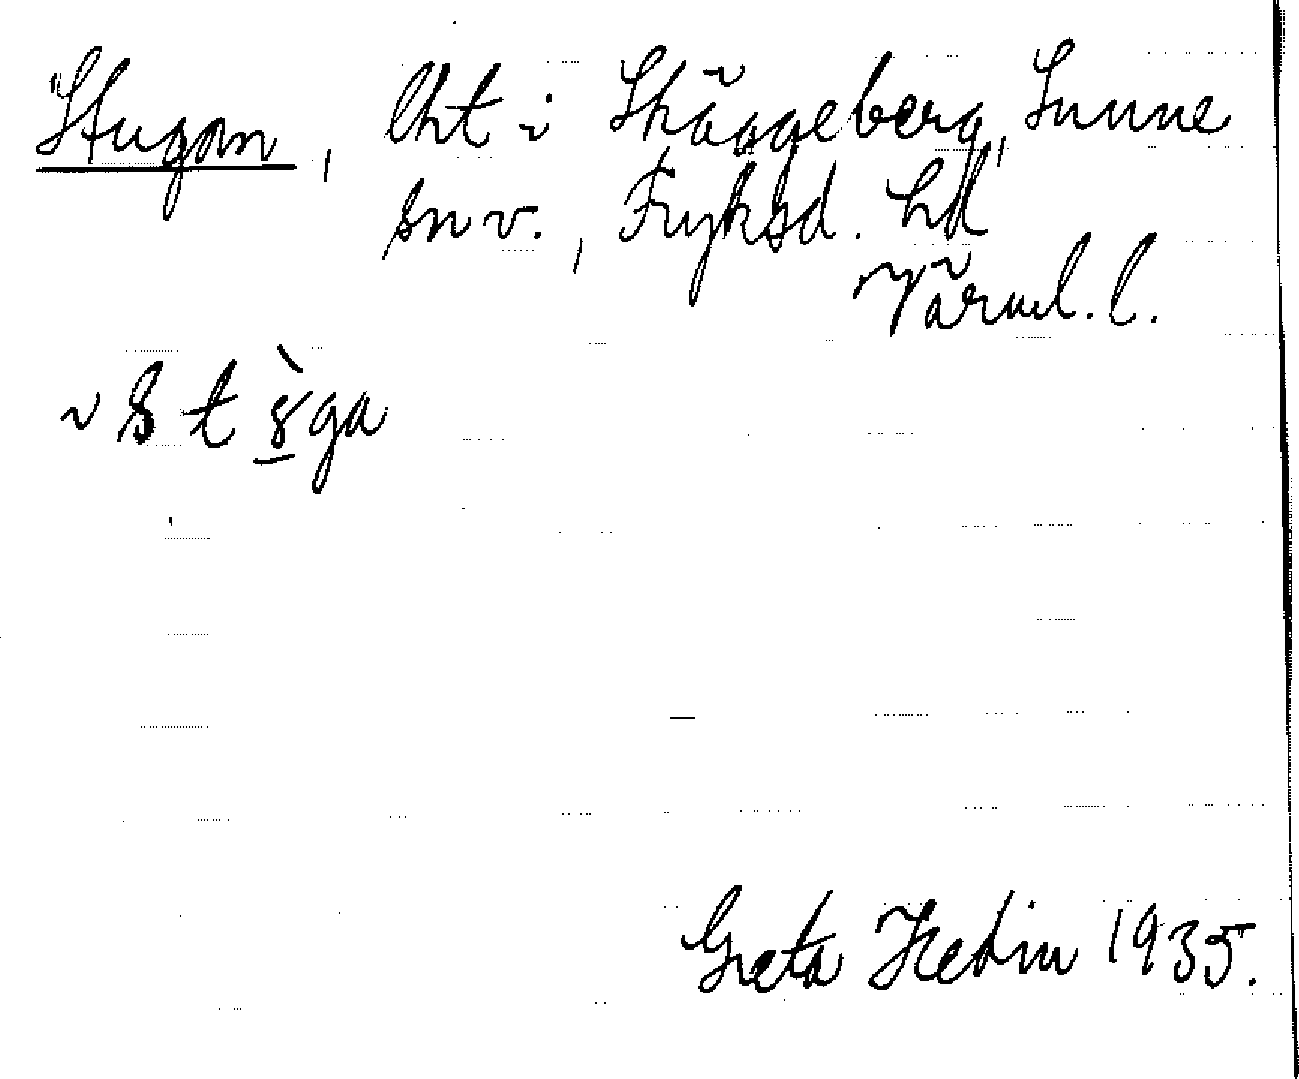 Stugan, lht i Skäggeberg, Sunne
sn v., Fryksd. hd
Värml. l.
~ s t ga
Greta Hedin 1935.